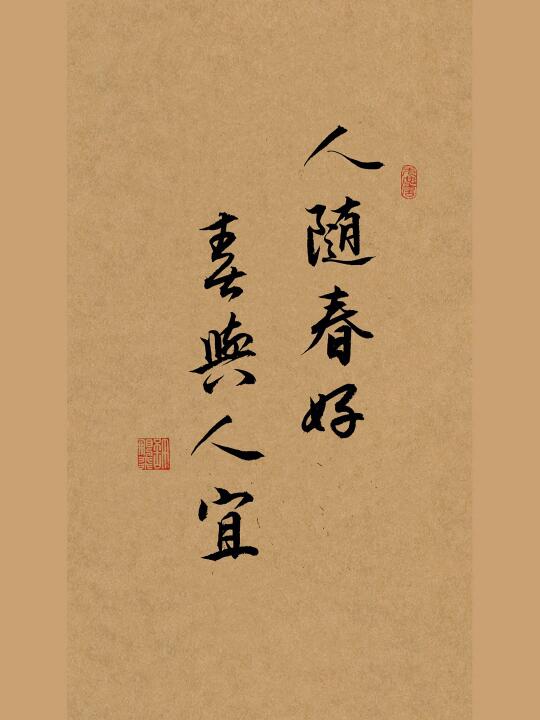 人随春好
春與人宜